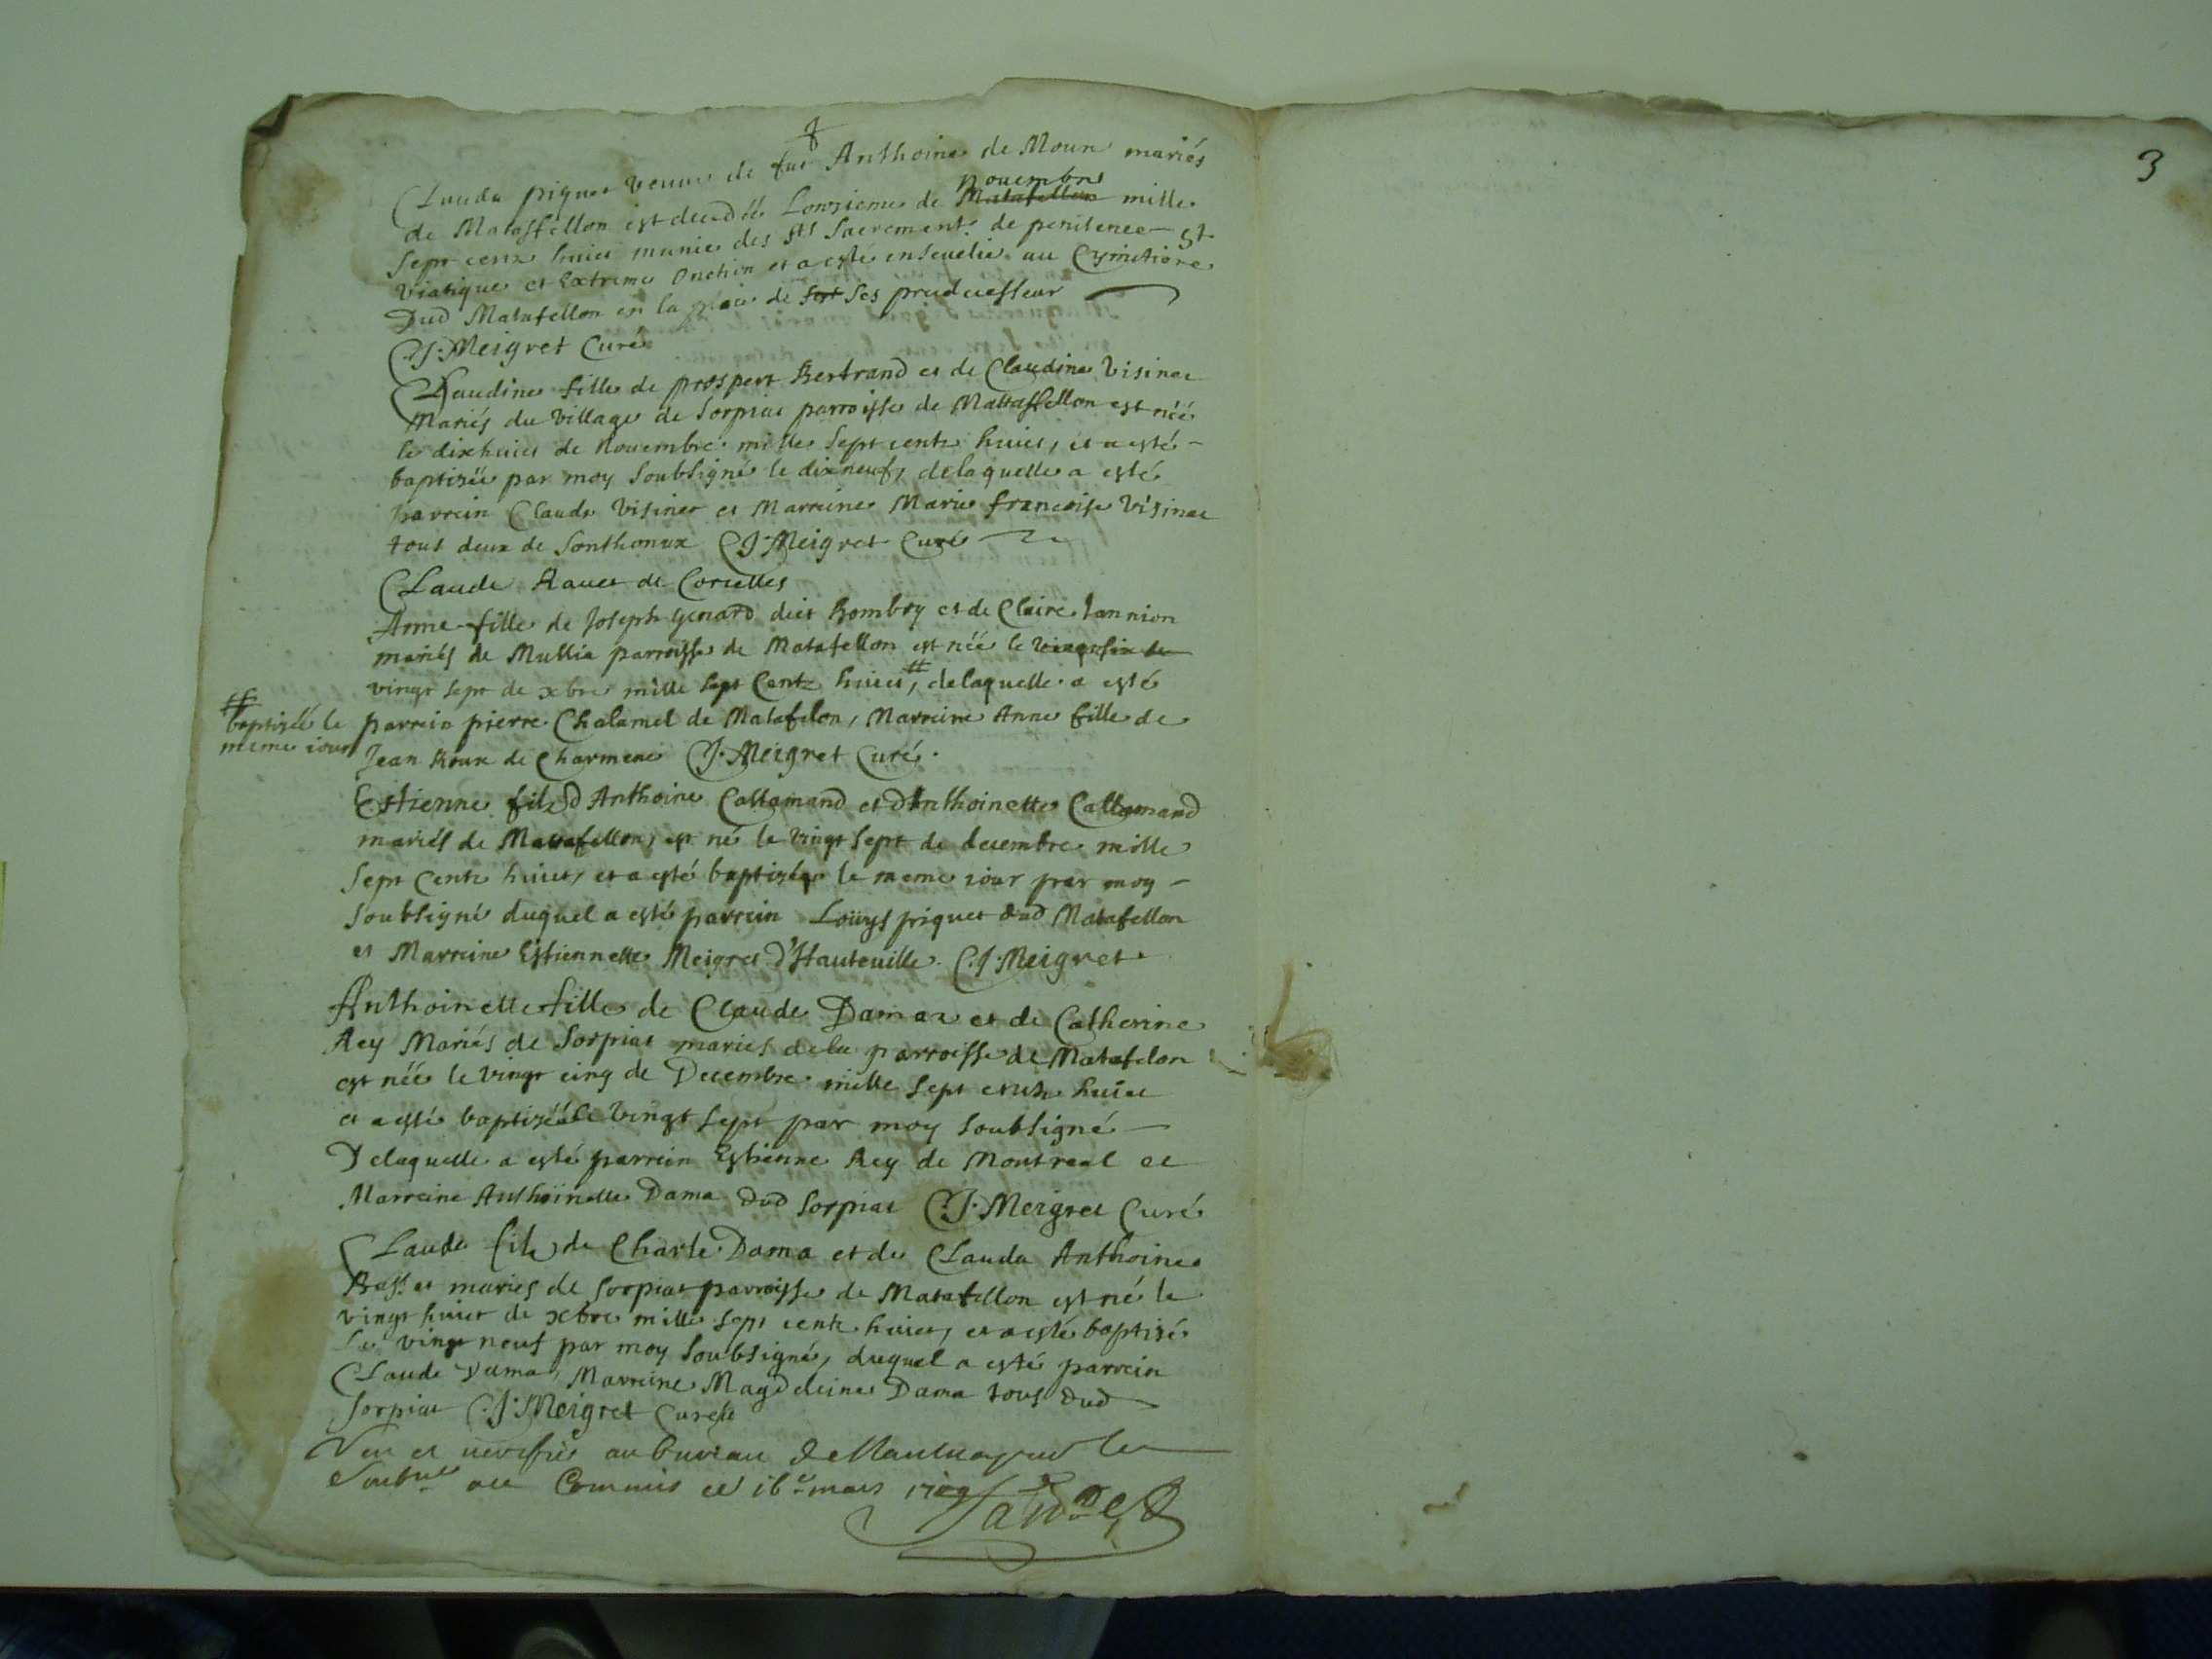 Clauda piquet veuue de fut Anthoine de Moun mariés
de Mataffellon est decedée Lonzieme de Matafellon novembre mille
Sept centz huict munie des Sts Sacrement de penitence et
viatique et Extreme Onction et a esté ensevelie au Cymitiere
Dud Matafellon en la place de ses preducesseur
C.J. Meigret Curé
Claudine fille de prospert Bertrand et de Claudine Visinet
Mariés du village de Sorpiat parroisse de Mattaffellon est néé
le dixhuict de Nouembre mille Sept centz huict, et a esté
baptizéé par moy soubsigné le dixneuf, de laquelle a esté
parrein Claude Visinet et Marreine Marie francoise Visinet
tout deux de Sonthonax C.J. Meigret Curé
Claude Rauet de Corcelles
Anne fille de Joseph Genard dict Bomboy et de Claire Jannion
mariés de Mullia parroisse de Matafellon est néé le
vingt sept de xbre mille sept Centz huict, # delaquelle a esté
# baptizéé le meme iour
parrein pierre Chalamel de Matafelon, Marreine Anne fille de
Jean Roux de Charmene C.J. Meigret Curé.
Estienne filz d Anthoine Callamand et d Anthoinette Callamand
mariés de Mattafellon, est né le vingt sept de decembre mille
Sept Centz huict, et a esté baptizé le meme iour par moy
Soubsigné duquel a esté parrein Louys piquet dud Matafellon
et Marreine Estiennette Meigret d'Hauteuille. C.J. Meigret
Anthoinette fille de Claude Damaz et de Catherine
Rey Mariés de Sorpiat mariés dela parroisse de Matafelon
est néé le vingt cinq de Decembre mille Sept centz huict
et a esté baptizéé le vingt sept par moy soubsigné
Delaquelle a esté parrein Estienne Rey de Montreal et
Marreine Anthoinette Dama dud Sorpiat C.J. Meigret Curé
Claude filz de Charle Dama et de Clauda Anthoine
Basset mariés de Sorpiat parroisse de Matafellon est né le
vingt huict de xbre mille sept centz huict, et a esté baptizé
Le vingt neuf par moy soubsigné, duquel a esté parrein
Claude Dama, Marreine Magdeleine Dama tous dud
Sorpiat C.J. Meigret Curé
Veu et verifié au bureau de Nantua par le
Commis ce 16e mars 1709
3